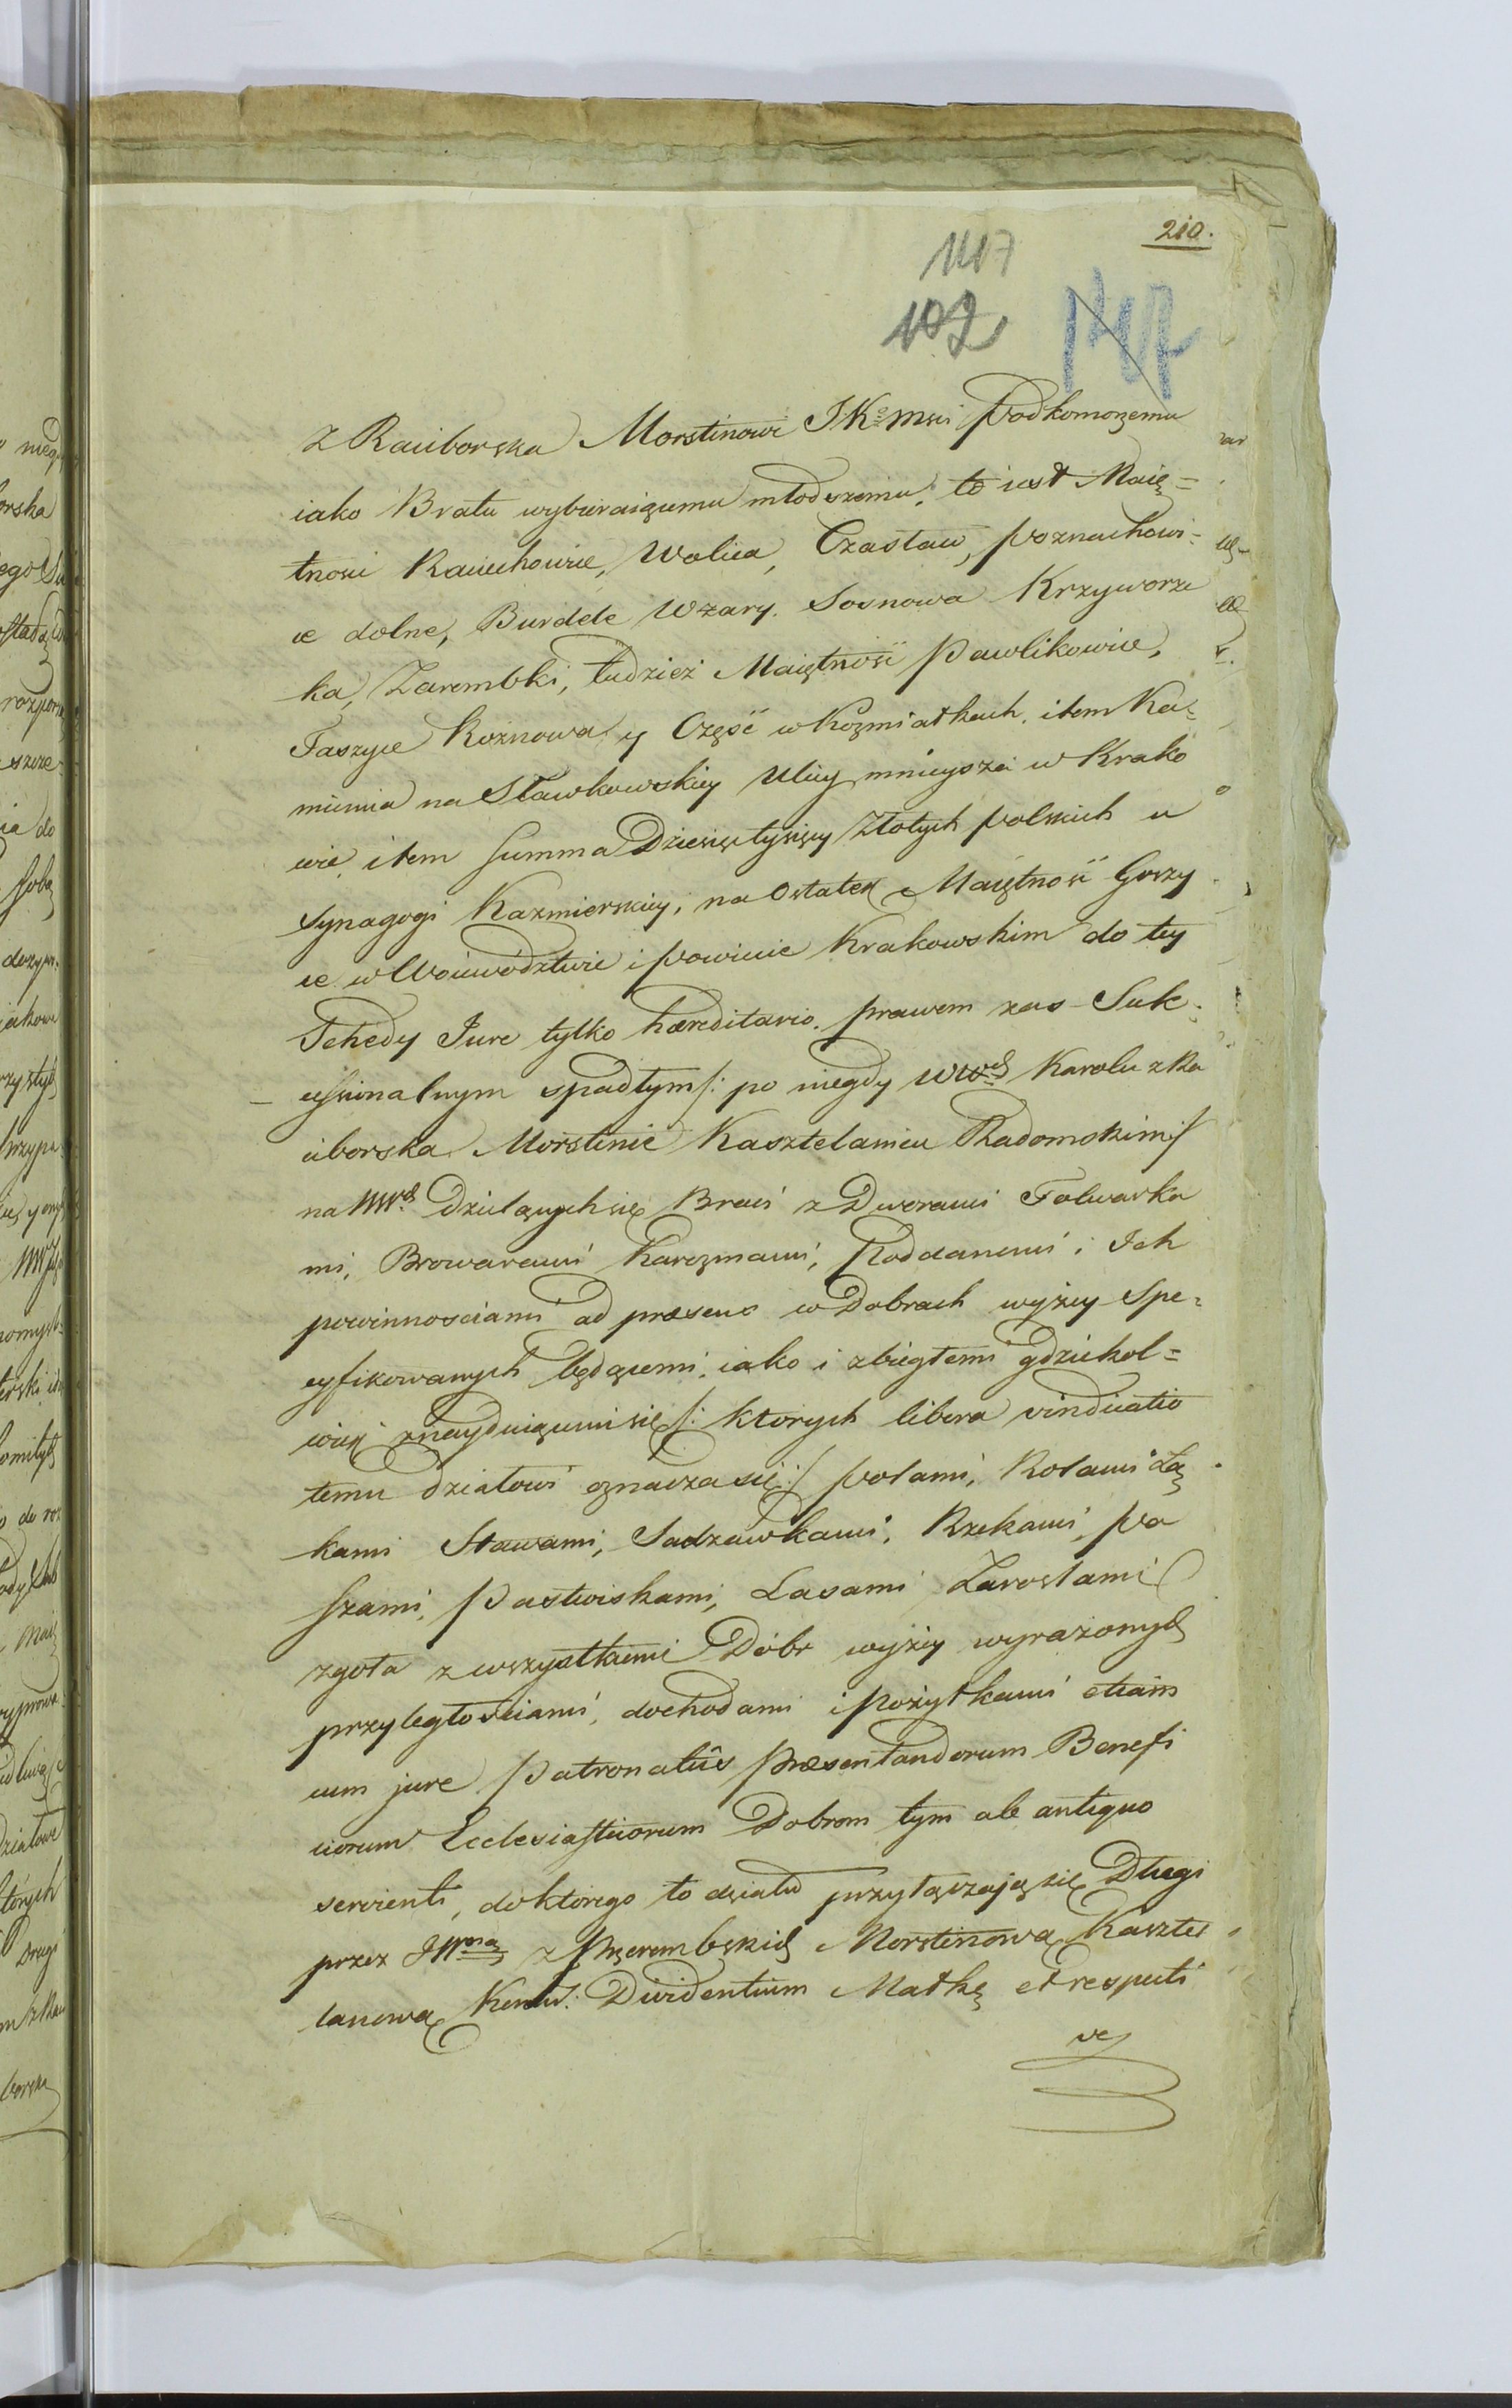 210.
147
102
147
z Raciborska Morstinowi JKmci podkomorzemu
iako Bratu wybieraiącemu młodszemu, to iest Maię=
tnosci Raciechowice, Wolica, Czasław, poznachowi=
ce dolne, Burdele Wzary. Sosnowa Krzyworze
ka, Zarembki, tudzież Maiętność Pawlikowice,
Taszyce Rożnowa y Część w Koźmiatkach, item Ka=
mienia na Sławkowskiey Ulicy mnieysza w Krako
wie, item Summa Dziesięć tysięcy Złotych polskich u
Synagogi Kazmierskiey, na Ostatek Maiętność Goszy
ce w Woiewództwie i powiecie Krakowskim do tey
Schedy Jure tylko hæreditario, prawem zas Suk=
cessionalnym spadłym /: po niegdy WWch Karolu z Ra
ciborska Morstinie Kasztelanicu Radomskim :/
na WWch Dzielących się Braci z Dworami Folwarka
mi, Browarami Karczmami, Poddanemi i Ich
powinnosciami ad præsens w Dobrach wyżey Spe=
cyfikowanych będącemi, iako i zbiegłemi gdziekol=
wiek znayduiącemi się /: ktorych libera vindicatio
temu działowi oznacza się :/ polami, Rolami Łą
kami Stawami, Sadzawkami, Rzekami, pa
szami, Pastwiskami, Lasami Zaroslami
zgoła z wszystkiemi Dóbr wyżey wyrażonych
przyległościami, dochodami i pożytkami etiam
cum jure Patronatûs præsentandorum Benefi
ciorum Ecclesiasticorum Dobrom tym ab antiquo
servienti, do ktorego to działu przyłączają się Długi
przez JWna z Przerembskich Morstinową Kaszte
lanową Dividentium Matkę et respecti
ve